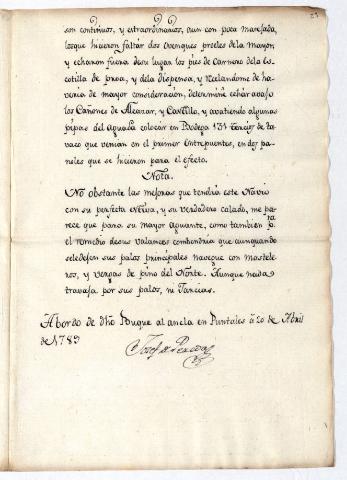 23
son continuos, y extraordinarios, aun con poca marejada,
los que hicieron faltar dos Ovenques proeles de la Mayor,
y echaron fuera de su lugar los pies de Carnero de la es-
cotilla de proa, y de la dispensa, y recelandome de ha-
veria de mayor consideración, determiné echar abaxo
los Cañones de Alcazar, y Castillo, y avatiendo algunas
pipas del aguada colocar en Bodega 131 tercios de ta-
vaco que venian en el primer Entrepuentes, en dos pa-
ñoles que se hicieron para el efecto.
Nota.
No obstante las mejoras que tendrá este Navio
con su perfecta Estiva, y su verdadero calado, me pa-
rece que para su mayor aguante, como tambien p.ra
el remedio de sus valances combendria que aunquando
se le dejen sus palos principales navegue con mastele-
ros, y vergas de pino del Norte. Aunque nada
travaja por sus palos, ni Jarcias.
Abordo de dho Buque al ancla en Puntales à 20 de Abril
de 1789